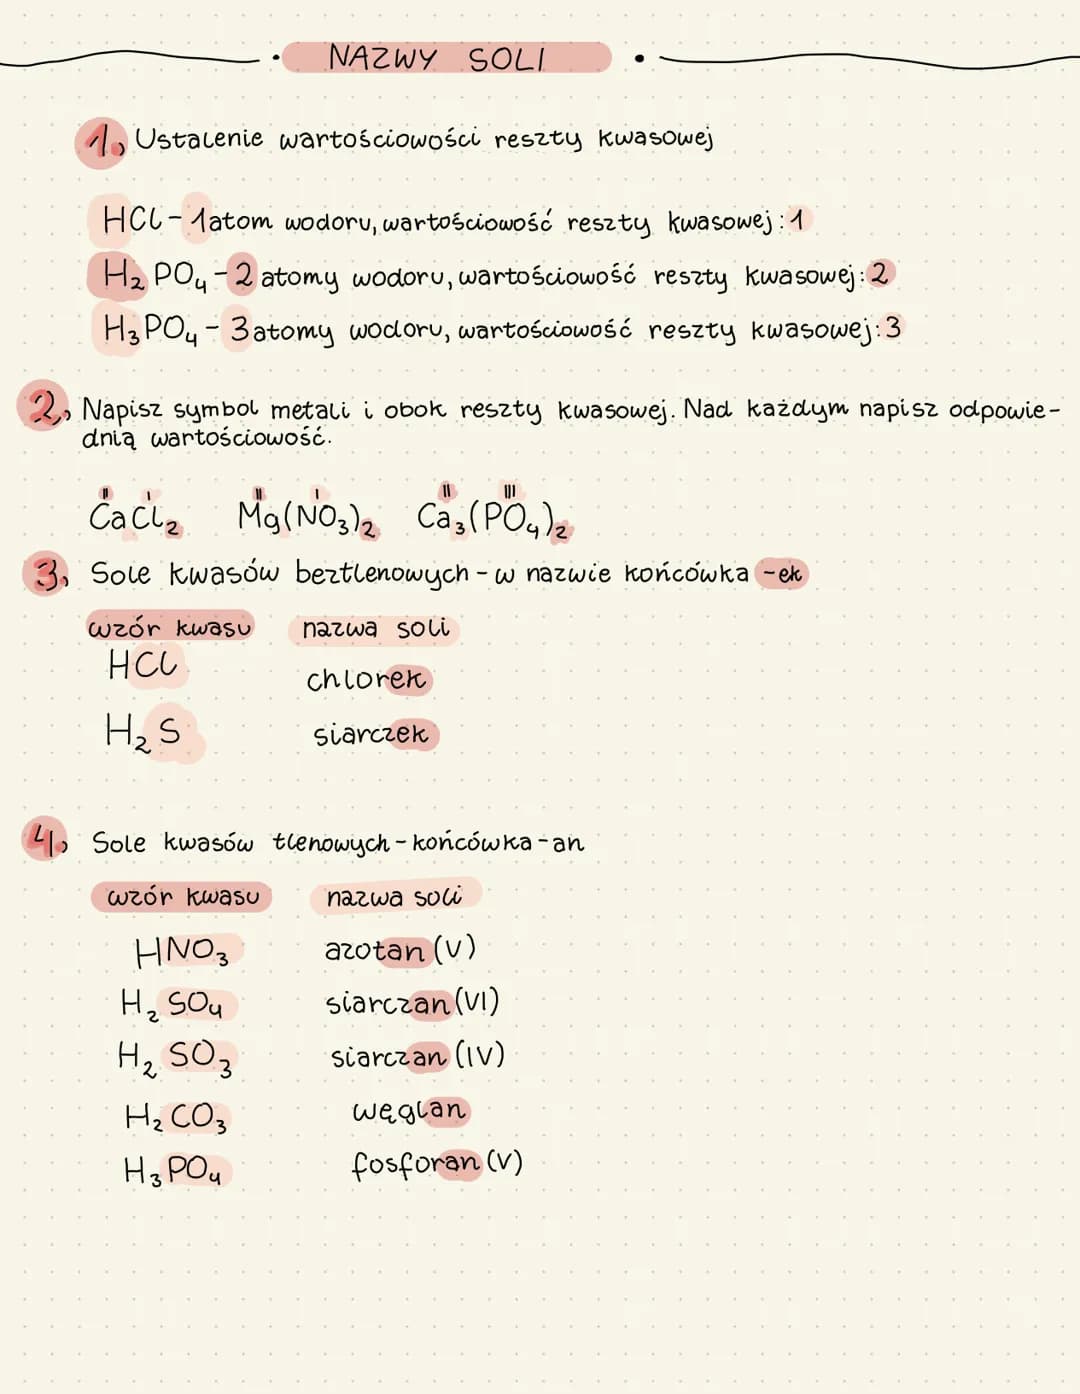 NAZWY SOLI
1. Ustalenie wartościowości reszty kwasowej
HCl - 1 atom wodoru, wartościowość reszty kwasowej: 1
H₂PO₄ - 2 atomy wodoru, wartościowość reszty kwasowej: 2
H₃PO₄ - 3 atomy wodoru, wartościowość reszty kwasowej: 3
2. Napisz symbol metali i obok reszty kwasowej. Nad każdym napisz odpowie-
dnią wartościowość.
II I II I II III
CaCl₂ Mg(NO₃)₂ Ca₃(PO₄)₂
3. Sole kwasów beztlenowych - w nazwie końcówka -ek
wzór kwasu nazwa soli
HCl chlorek
H₂S siarczek
4. Sole kwasów tlenowych - końcówka -an
wzór kwasu nazwa soli
HNO₃ azotan (V)
H₂SO₄ siarczan (VI)
H₂SO₃ siarczan (IV)
H₂CO₃ węglan
H₃PO₄ fosforan (V)